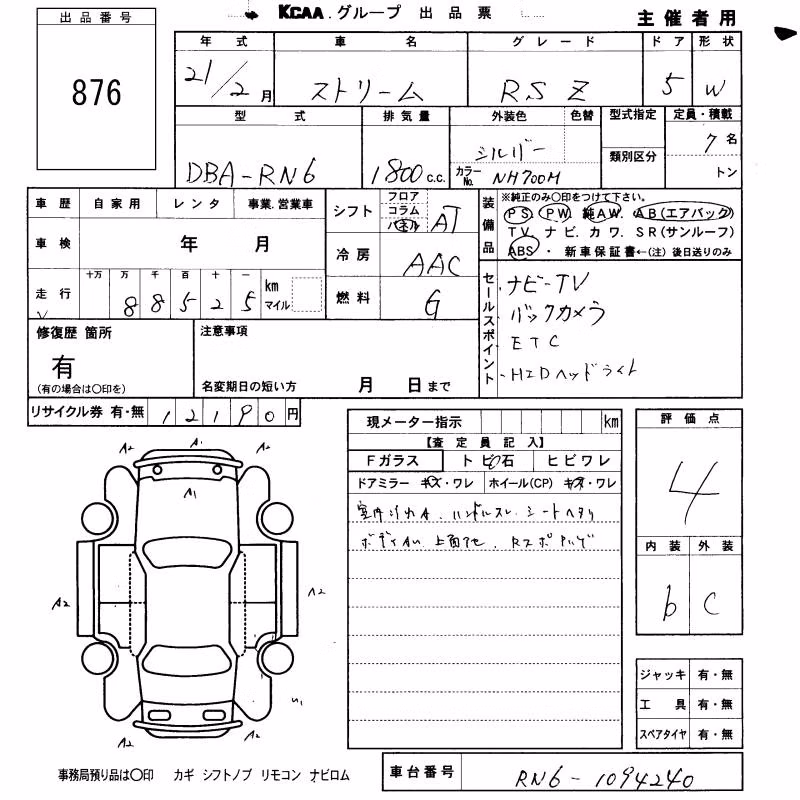 KCAA.グループ 出品票
主催者用
出品番号
876
年式 車名 グレード ドア 形状
21/2月 ストリーム RS Z 5 W
型式 排気量 外装色 色替 型式指定 定員・積載
DBA-RN6 1800c.c. シルバー カラーNo. NH700M 類別区分 7名 トン
車歴 自家用 レンタ 事業.営業車
車検 年 月
走行 十万 万 千 百 十 一 km マイル
88525
シフト フロア コラム パネル AT
冷房 AAC
燃料 G
装備品 ※純正のみ〇印をつけて下さい。
PS. PW. 純AW. AB(エアバック)
TV. ナビ. カワ. SR(サンルーフ)
ABS・新車保証書←(注) 後日送りのみ
セールスポイント
・ナビ-TV
・バックカメラ
・ETC
・HIDヘッドライト
修復歴 箇所
有
(有の場合は〇印を)
注意事項
名変期日の短い方 月 日まで
リサイクル券 有・無 12190円
現メーター指示 km
【査定員記入】
Fガラス トビ石 ヒビワレ
ドアミラー キズ・ワレ ホイール(CP) キズ・ワレ
ハンドルスレ シートヘタリ
評価点
4
内装 外装
b C
A2 A1 A2
A1
A2 A2
A2 A2
ジャッキ 有・無
工具 有・無
スペアタイヤ 有・無
事務局預り品は〇印 カギ シフトノブ リモコン ナビロム
車台番号 RN6-1094240